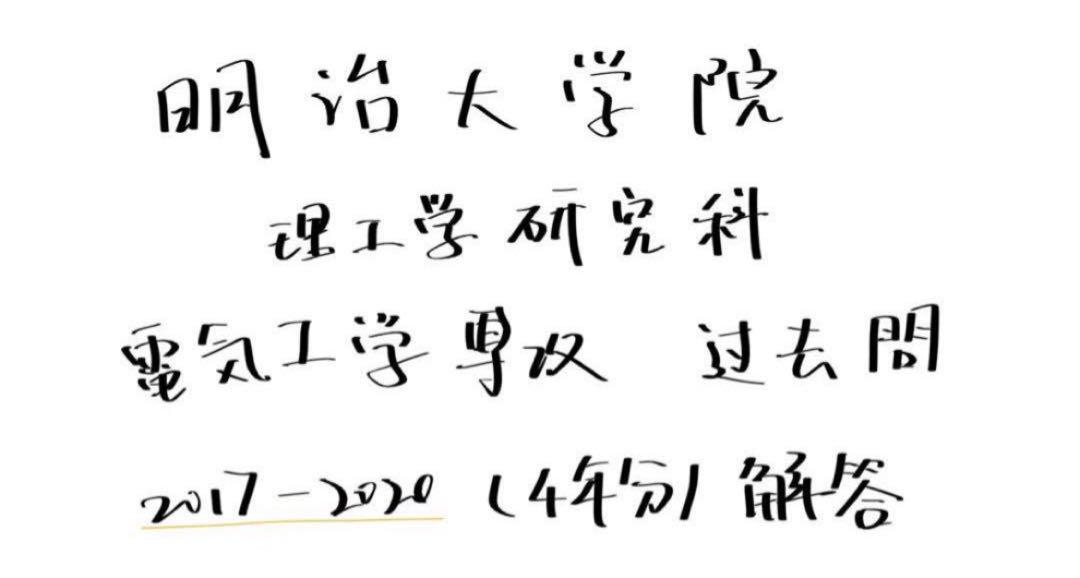 明治大学院
理工学研究科
電気工学専攻 过去問
2017-2020 (4年份) 解答